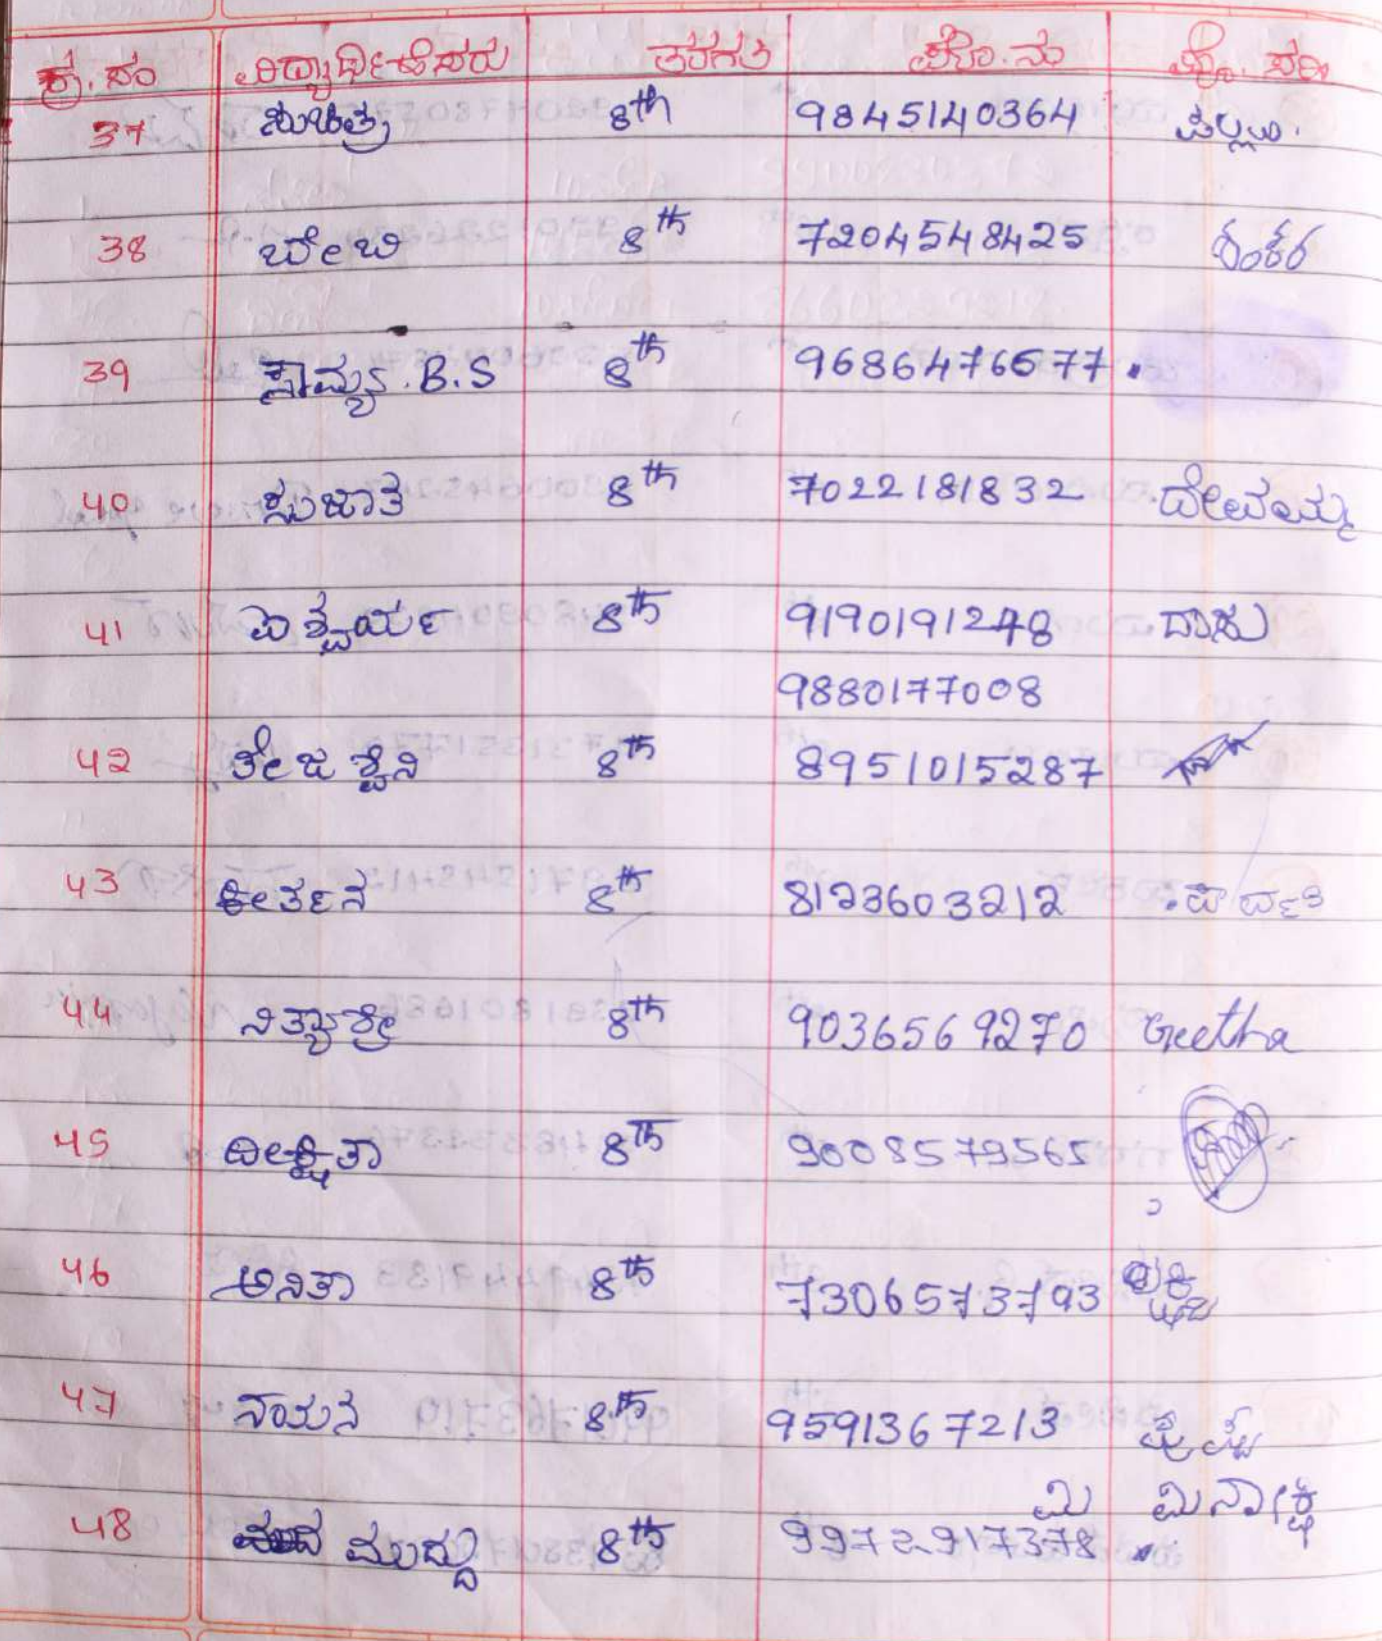 ಕ್ರ.ಸಂ ವಿದ್ಯಾರ್ಥಿ ಹೆಸರು ತರಗತಿ ಫೋ.ನಂ ಪೋ. ಸಹಿ
37 ಸುಚಿತ್ರ 8th 9845140364
38 ಬೇಬಿ 8th 7204548425 ಶಂಕರ
39 ಸೌಮ್ಯ.B.S 8th 9686476677
40 ಸುಜಾತ 8th 7022181832 ದೇವಮ್ಮ
41 ಐಶ್ವರ್ಯ 8th 9190191248 ರಾಜು
9880177008
42 ತೇಜಶ್ವಿನಿ 8th 8951015287
43 ಕೀರ್ತನ 8th 8123603212 ಪಾರ್ವತಿ
44 ನಿತ್ಯಾಶ್ರೀ 8th 9036569270 Geetha
45 ದೀಕ್ಷಿತಾ 8th 9008579565
46 ಅನಿತಾ 8th 7306573793
47 ನಯನ 8th 9591367213 ಪುಷ್ಪ
ಮಿ ಮಿನಾಕ್ಷಿ
48 ಮುದ್ದು 8th 9972917378